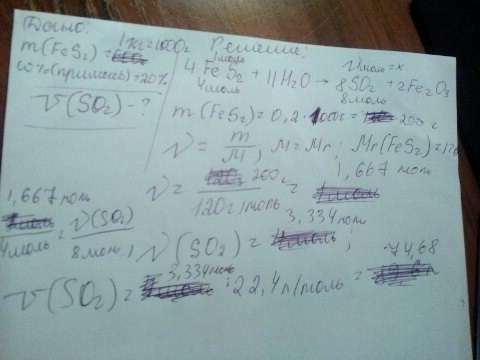 Дано:
m(FeS₂) = 1кг=1000г
ω%(примись)=20%
V(SO₂) - ?
Решение:
1моль Vмоль = x
4FeS₂ + 11H₂O → 8SO₂ + 2Fe₂O₃
4моль 8моль
m(FeS₂) = 0,2 · 1000г = 200 г
ν = m/M ; M = Mr ; Mr(FeS₂) = 120
ν = 200г / 120г/моль = 1,667 моль
1,667 моль / 4моль = ν(SO₂) / 8моль ; ν(SO₂) = 3,334моль ;
V(SO₂) = 3,334моль · 22,4л/моль = 74,68